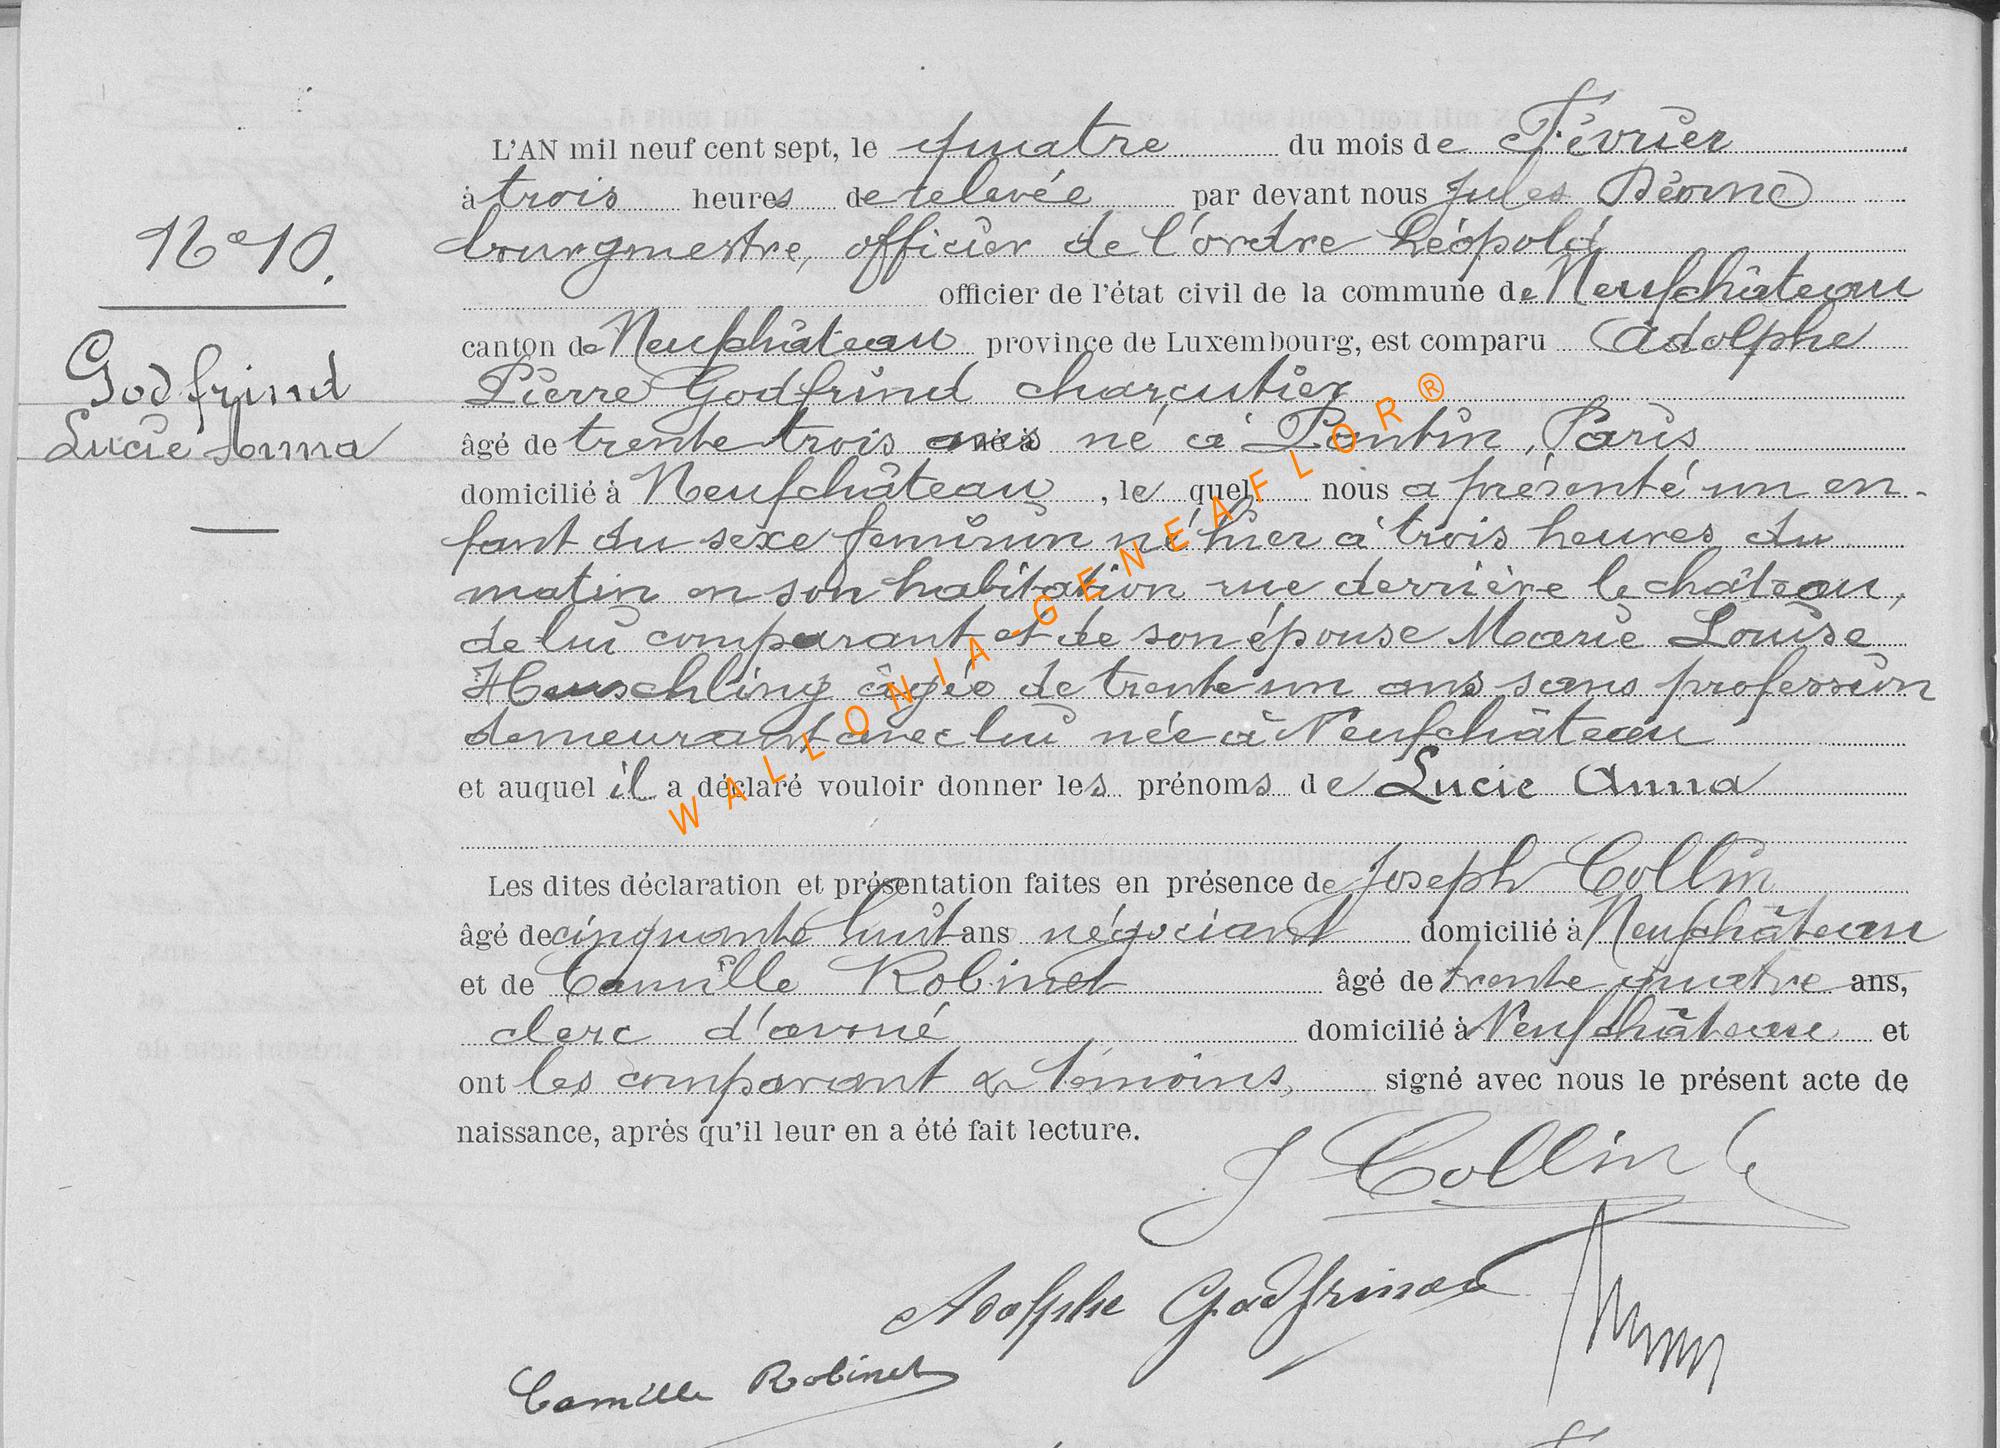 L'AN mil neuf cent sept, le quatre du mois de Février
à trois heures de relevée par devant nous Jules
N° 10.
bourgmestre, officier de l'ordre Léopold
officier de l'état civil de la commune de Neufchâteau
canton de Neufchâteau province de Luxembourg, est comparu Adolphe
Godfrind
Lucie Anna
Pierre Godfrind charcutier
âgé de trente trois ans né à Pantin, Paris
domicilié à Neufchâteau, le quel nous a présenté un en-
fant du sexe feminin né hier à trois heures du
matin en son habitation rue derrière le château,
de lui comparant et de son épouse Marie Louise
Heuschling âgée de trente un ans sans profession
demeurant avec lui née à Neufchâteau
et auquel il a déclaré vouloir donner les prénoms de Lucie Anna
Les dites déclaration et présentation faites en présence de Joseph Collin
âgé de cinquante huit ans négociant domicilié à Neufchâteau
et de Camille Robinet âgé de trente quatre ans,
clerc d'avoué domicilié à Neufchâteau et
ont les comparant & témoins, signé avec nous le présent acte de
naissance, après qu'il leur en a été fait lecture.
J Collin
Adolphe Godfrind
Camille Robinet
WALLONIA-GENEAFLOR®